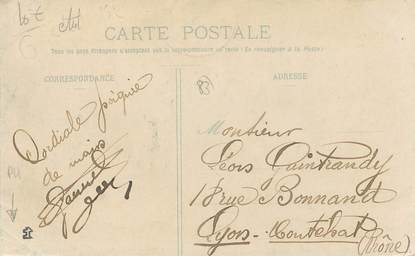 CARTE POSTALE
Tous les pays étrangers n'acceptent pas la correspondance au verso (Se renseigner à la Poste)
CORRESPONDANCE
ADRESSE
83
Cordiale poignée
de mains
Monsieur
Léon Guintrandy
18 rue Bonnand
Lyon-Montchat
(Rhône).